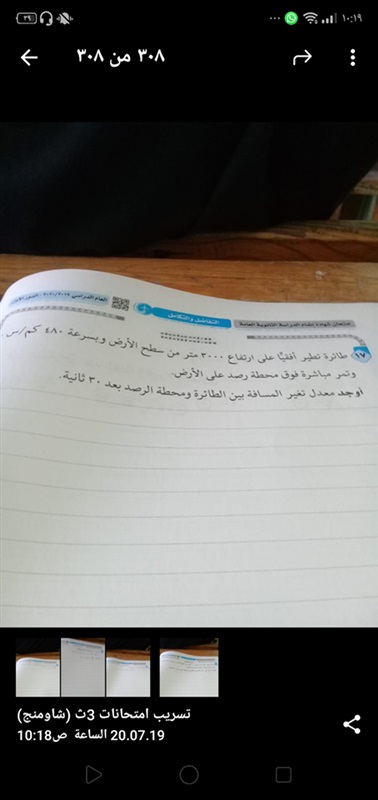 ١٠:١٩
٣٩
٣٠٨ من ٣٠٨
امتحان شهادة إتمام الدراسة الثانوية العامة
التفاضل والتكامل
العام الدراسي
١٧ طائرة تطير أفقيًا على ارتفاع ٣٠٠٠ متر من سطح الأرض وبسرعة ٤٨٠ كم/س.
وتمر مباشرة فوق محطة رصد على الأرض.
أوجد معدل تغير المسافة بين الطائرة ومحطة الرصد بعد ٣٠ ثانية.
تسريب امتحانات 3ث (شاومنج)
20.07.19 الساعة ص10:18